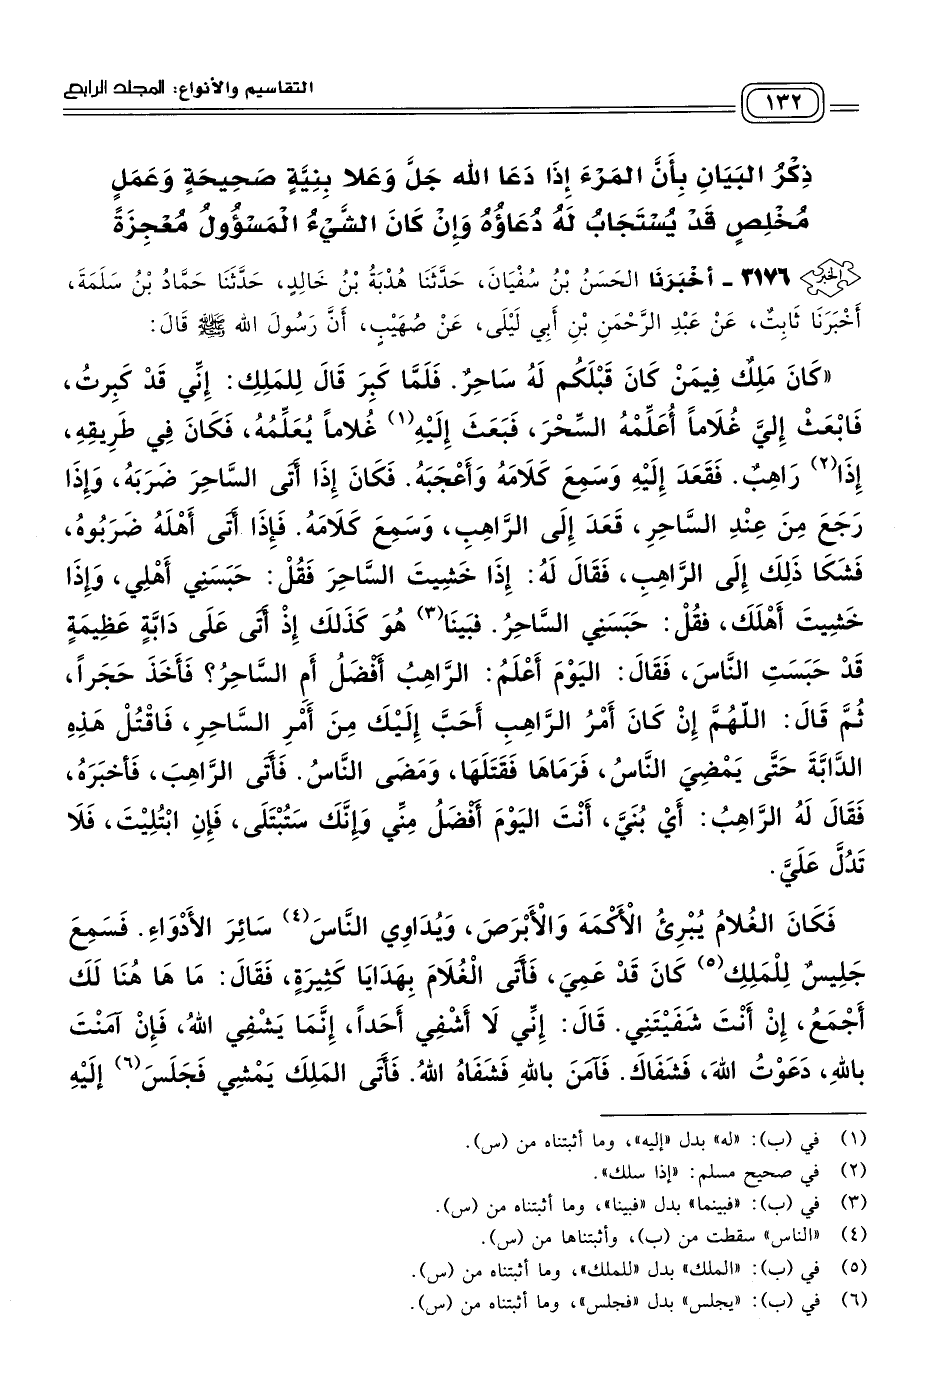 التقاسيم والأنواع: المجلد الرابع
١٣٢
ذِكْرُ البَيَانِ بِأَنَّ المَرْءَ إِذَا دَعَا الله جَلَّ وَعَلا بِنِيَّةٍ صَحِيحَةٍ وَعَمَلٍ
مُخْلِصٍ قَدْ يُسْتَجَابُ لَهُ دُعَاؤُهُ وَإِنْ كَانَ الشَّيْءُ الْمَسْؤُولُ مُعْجِزَةً
الخبر ٣١٧٦ - أَخْبَرَنَا الحَسَنُ بْنُ سُفْيَانَ، حَدَّثَنَا هُدْبَةُ بْنُ خَالِدٍ، حَدَّثَنَا حَمَّادُ بْنُ سَلَمَةَ،
أَخْبَرَنَا ثَابِتٌ، عَنْ عَبْدِ الرَّحْمَنِ بْنِ أَبِي لَيْلَى، عَنْ صُهَيْبٍ، أَنَّ رَسُولَ الله ﷺ قَالَ:
«كَانَ مَلِكٌ فِيمَنْ كَانَ قَبْلَكُم لَهُ سَاحِرٌ. فَلَمَّا كَبِرَ قَالَ لِلمَلِكِ: إِنِّي قَدْ كَبِرتُ،
فَابْعَثْ إِليَّ غُلَاماً أُعَلِّمْهُ السِّحْرَ، فَبَعَثَ إِلَيْهِ(١) غُلاماً يُعَلِّمُهُ، فَكَانَ فِي طَرِيقِهِ،
إِذَا(٢) رَاهِبٌ. فَقَعَدَ إِلَيْهِ وَسَمِعَ كَلَامَهُ وَأَعْجَبَهُ. فَكَانَ إِذَا أَتَى السَّاحِرَ ضَرَبَهُ، وَإِذَا
رَجَعَ مِنَ عِنْدِ السَّاحِرِ، قَعَدَ إِلَى الرَّاهِبِ، وَسَمِعَ كَلَامَهُ. فَإِذَا أَتَى أَهْلَهُ ضَرَبُوهُ،
فَشَكَا ذَلِكَ إِلَى الرَّاهِبِ، فَقَالَ لَهُ: إِذَا خَشِيتَ السَّاحِرَ فَقُلْ: حَبَسَنِي أَهْلِي، وَإِذَا
خَشِيتَ أَهْلَكَ، فقُلْ: حَبَسَنِي السَّاحِرُ. فَبَينَا(٣) هُوَ كَذَلِكَ إِذْ أَتَى عَلَى دَابَّةٍ عَظِيمَةٍ
قَدْ حَبَسَتِ النَّاسَ، فَقَالَ: اليَوْمَ أَعْلَمُ: الرَّاهِبُ أَفْضَلُ أَمِ السَّاحِرُ؟ فَأَخَذَ حَجَراً،
ثُمَّ قَالَ: اللّهُمَّ إِنْ كَانَ أَمْرُ الرَّاهِبِ أَحَبَّ إِلَيْكَ مِنَ أَمْرِ السَّاحِرِ، فَاقْتُلْ هَذِهِ
الدَّابَةَ حَتَّى يَمْضِيَ النَّاسُ، فَرَمَاهَا فَقَتَلَهَا، وَمَضَى النَّاسُ. فَأَتَى الرَّاهِبَ، فَأَخبَرَهُ،
فَقَالَ لَهُ الرَّاهِبُ: أَيْ بُنَيَّ، أَنْتَ اليَوْمَ أَفْضَلُ مِنِّي وَإِنَّكَ سَتُبْتَلَى، فَإِنِ ابْتُلِيْتَ، فَلَا
تَدُلَّ عَلَيَّ.
فَكَانَ الغُلَامُ يُبْرِئُ الْأَكْمَهَ وَالْأَبْرَصَ، وَيُدَاوِي النَّاسَ(٤) سَائِرَ الأَدْوَاءِ. فَسَمِعَ
جَلِيسٌ لِلْمَلِكِ(٥) كَانَ قَدْ عَمِيَ، فَأَتَى الْغُلَامَ بِهَدَايَا كَثِيرَةٍ، فَقَالَ: مَا هَا هُنَا لَكَ
أَجْمَعُ، إِنْ أَنْتَ شَفَيْتَنِي. قَالَ: إِنِّي لَا أَشْفِي أَحَداً، إِنَّمَا يَشْفِي اللهُ، فَإِنْ آمَنْتَ
بِاللهِ، دَعَوْتُ اللهَ، فَشَفَاكَ. فَآمَنَ بِاللهِ فَشَفَاهُ اللهُ. فَأَتَى المَلِكَ يَمْشِي فَجَلَسَ(٦) إِلَيْهِ
(١) في (ب): «له» بدل «إليه»، وما أثبتناه من (س).
(٢) في صحيح مسلم: «إذا سلك».
(٣) في (ب): «فبينما» بدل «فبينا»، وما أثبتناه من (س).
(٤) «الناس» سقطت من (ب)، وأثبتناها من (س).
(٥) في (ب): «الملك» بدل «للملك»، وما أثبتناه من (س).
(٦) في (ب): «يجلس» بدل «فجلس»، وما أثبتناه من (س).